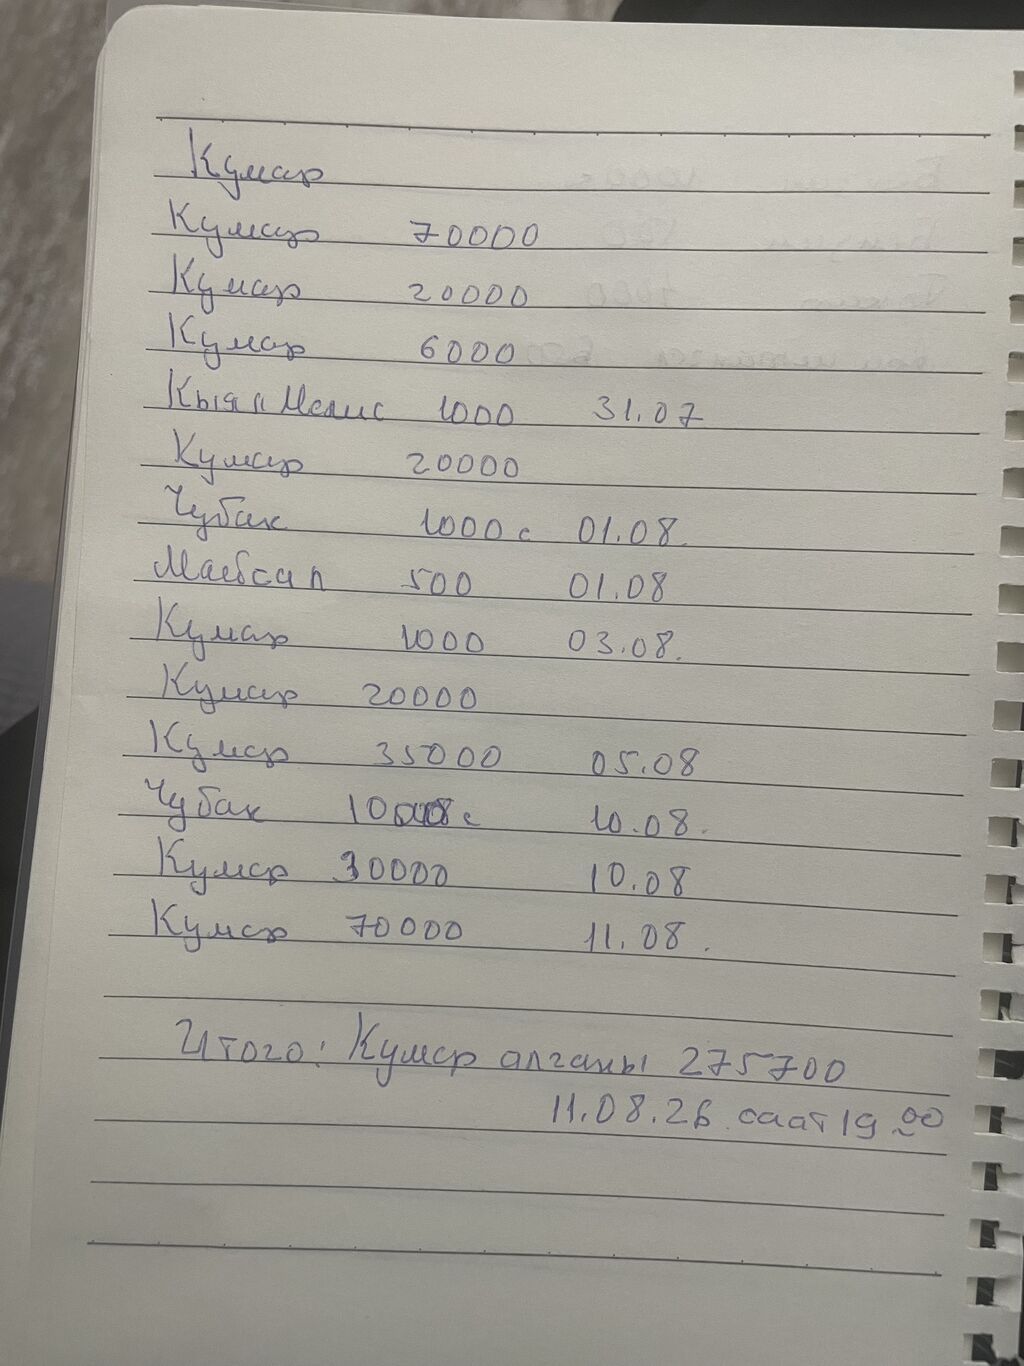 Кумар
Кумар 70000
Кумар 20000
Кумар 6000
Кыял Мелис 1000 31.07
Кумар 20000
Чубак 1000 с 01.08.
500 01.08
Кумар 1000 03.08.
Кумар 20000
Кумар 35000 05.08
Чубак с 10.08.
Кумар 30000 10.08
Кумар 70000 11.08.
Итого: Кумар алганы 275700
11.08.26. саат 19 00